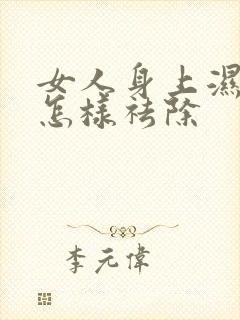 女人身上濕
怎樣祛除
李元偉